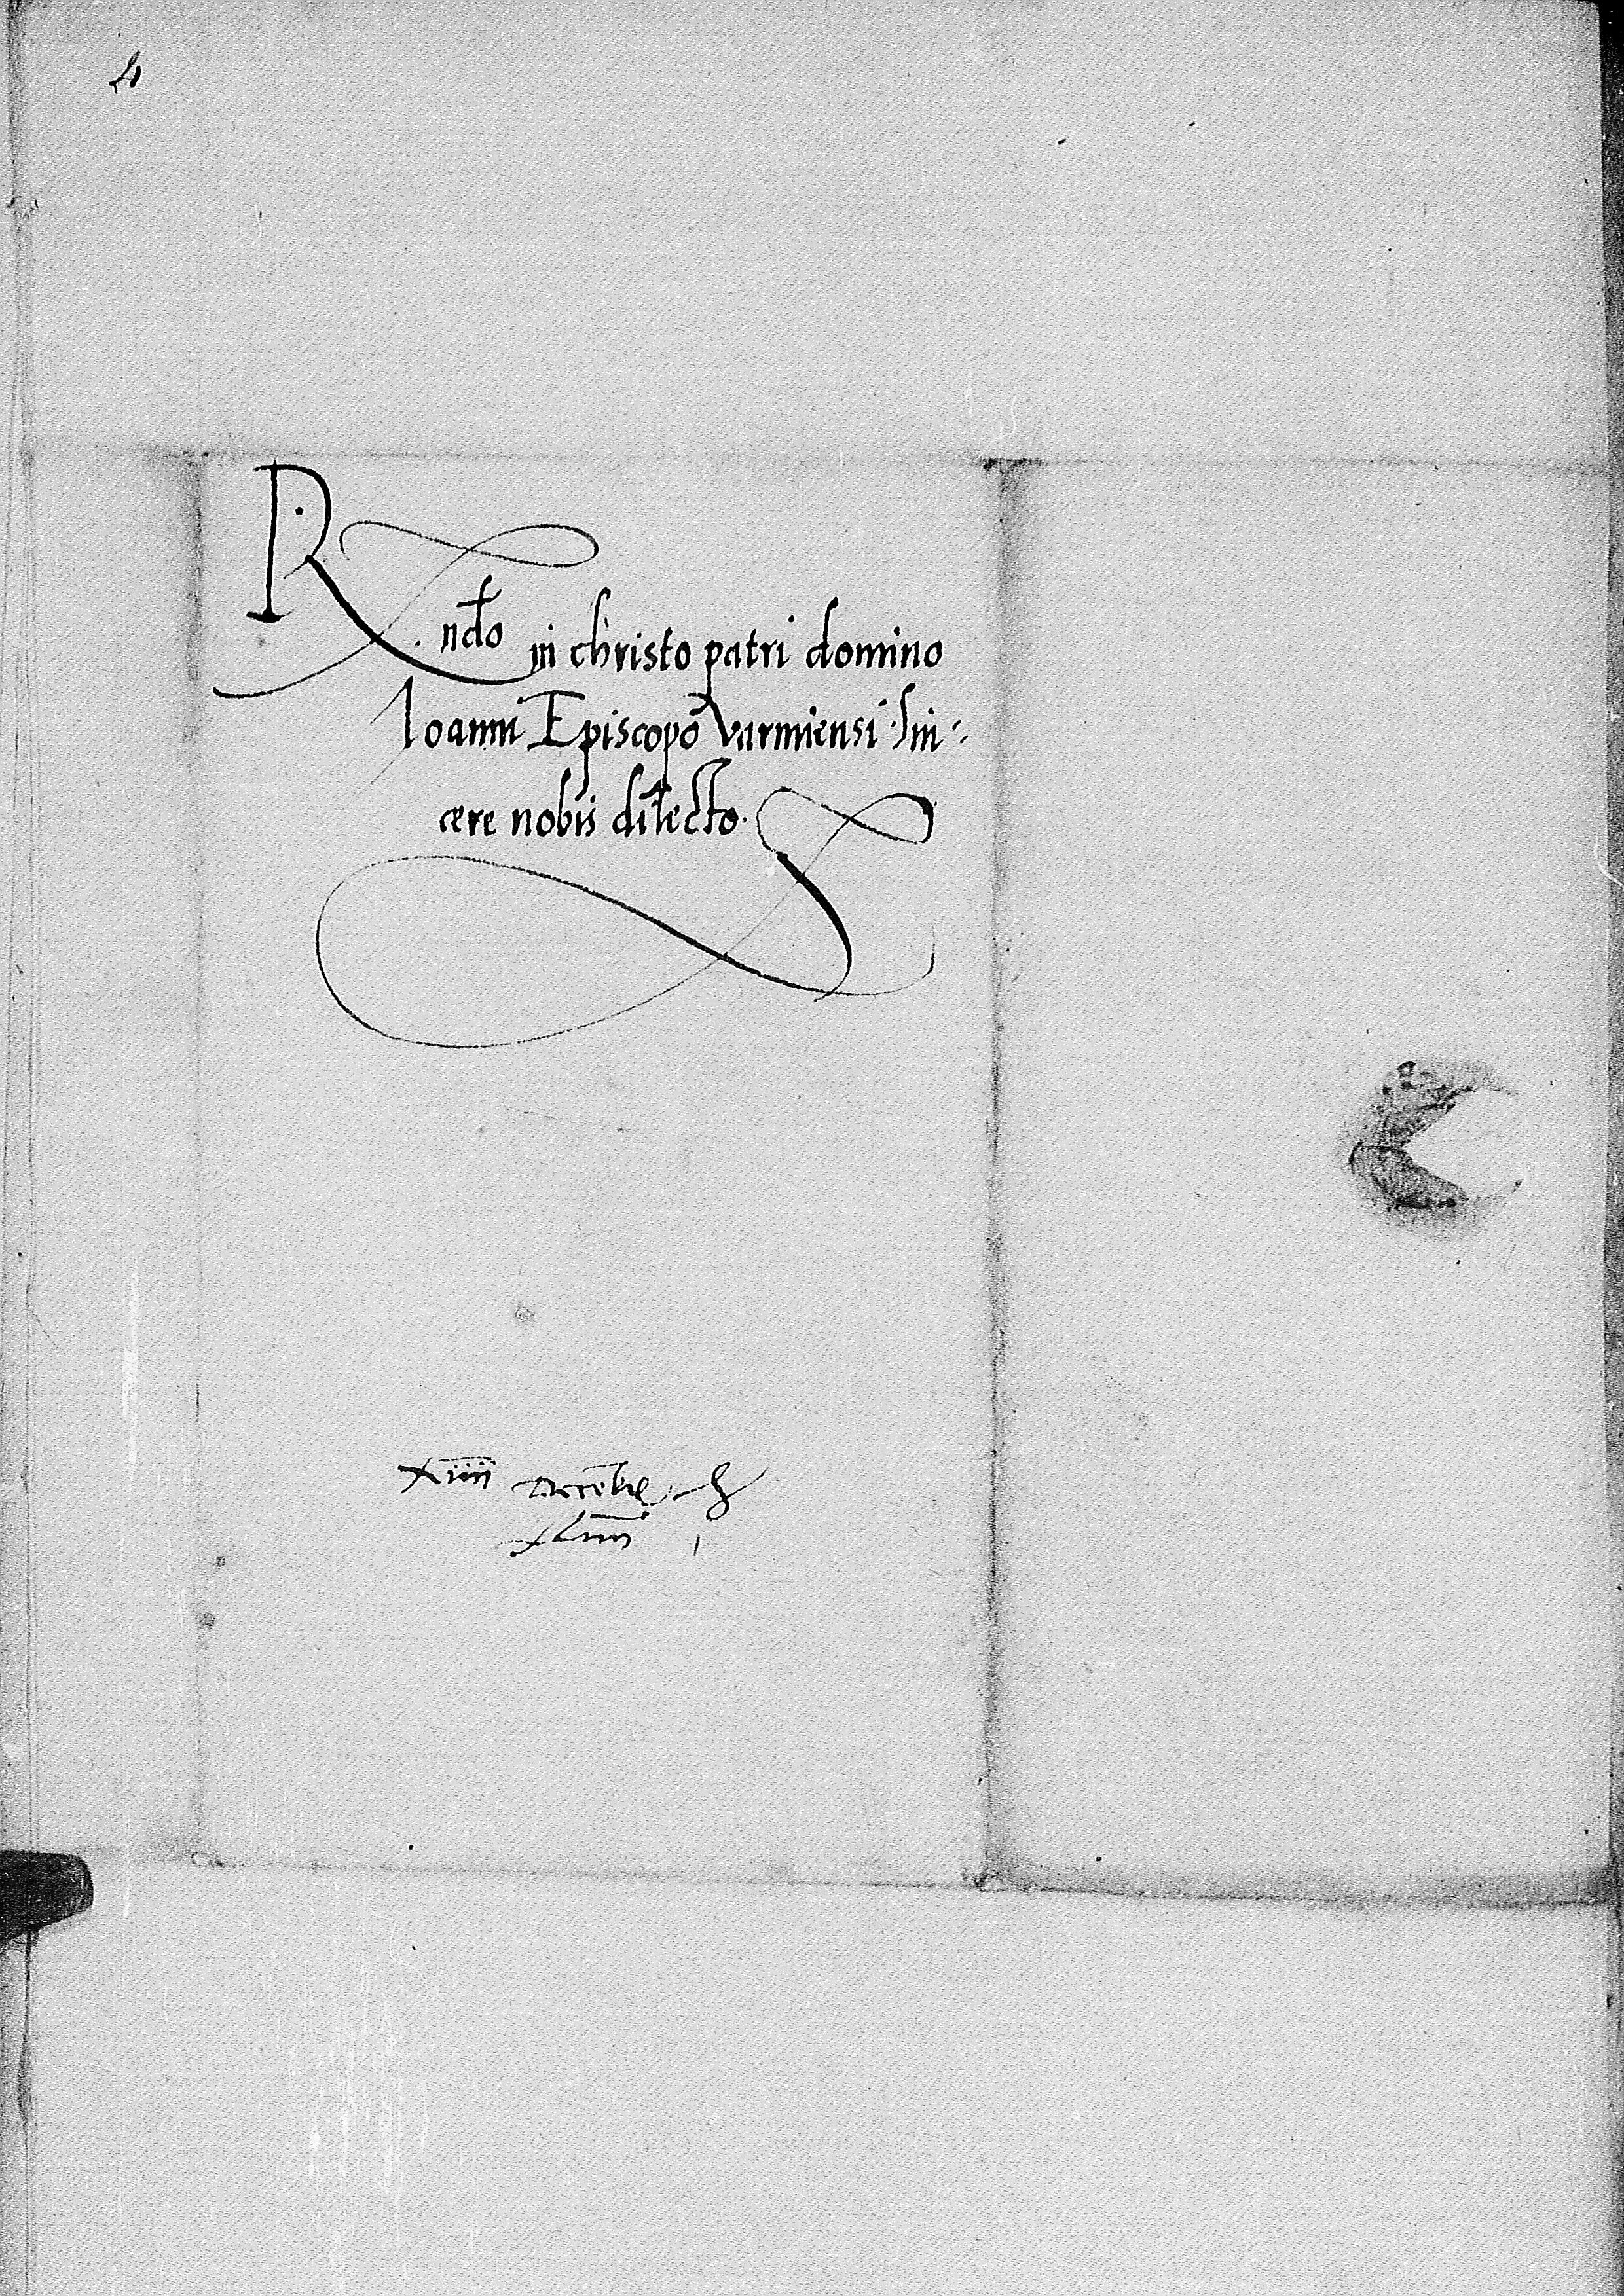 4
R.ndo in christo patri domino
Ioanni Episcopo Varmiensi Sin-
cere nobis dilecto.
Xiiii Decembris
xliiii